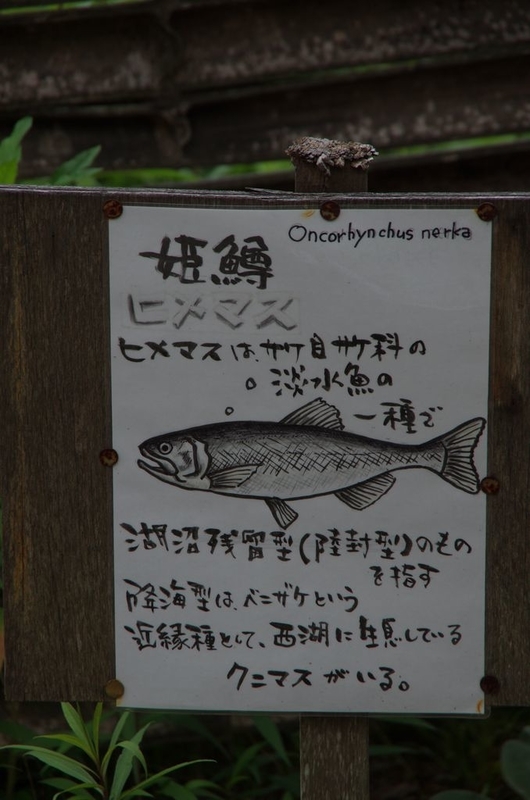 Oncorhynchus nerka
姫鱒
ヒメマス
ヒメマスは、サケ目サケ科の
淡水魚の
一種で
湖沼残留型(陸封型)のもの
を指す
降海型は、ベニザケという
近縁種として、西湖に生息している
クニマスがいる。